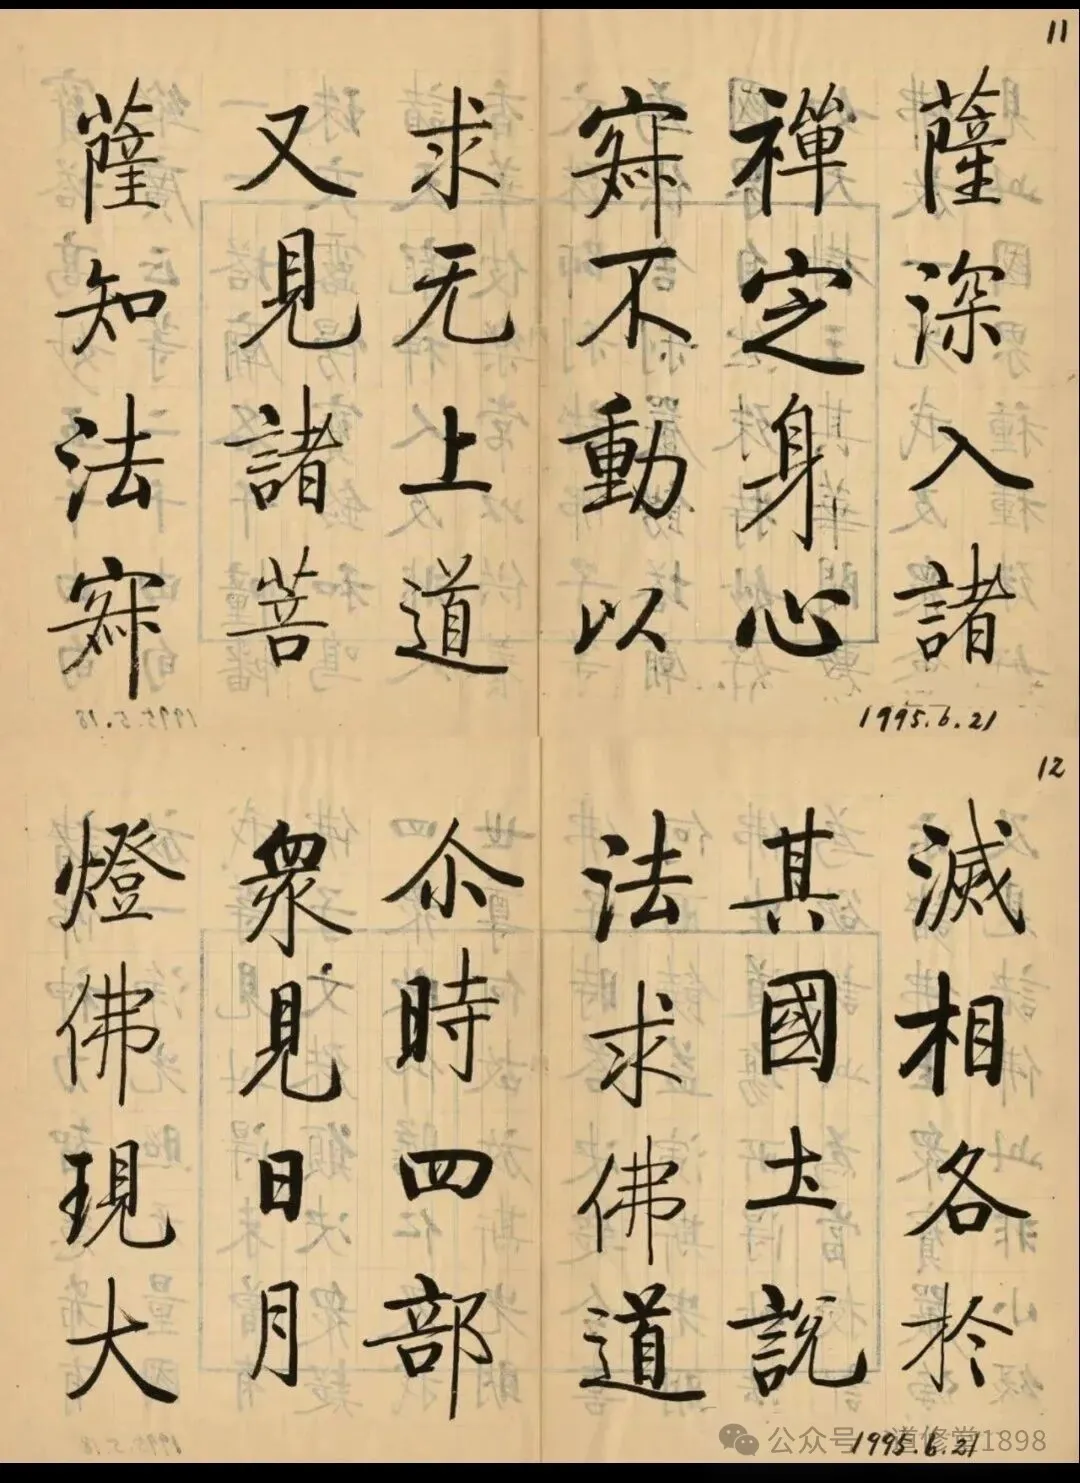 11
薩深入諸
禪定身心
寂不動以
求无上道
又見諸菩
薩知法寂
1995.6.21
12
滅相各於
其國土説
法求佛道
尒時四部
衆見日月
燈佛現大
1995.6.21
公众号·道修堂1898